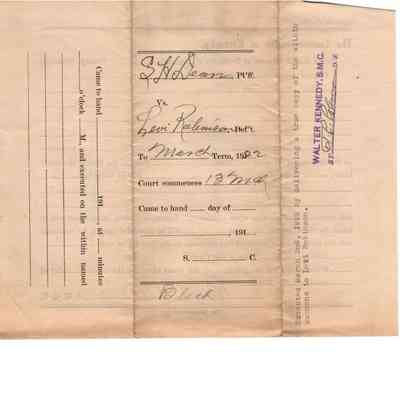 Came to hand ___ 191___ at ___ minutes
___ o'clock ___ M., and executed on the within named
S. H. Dean Pl'ff.
Vs.
Levi Robinson Def't.
To March Term, 19
Court commences
Came to hand ___ day of ___
___, 191___
S. ___ C.
Executed March 2nd, 19 by delivering a true copy of the within
summons to Levi Robinson.
WALTER KENNEDY, S.M.C.
BY
D.S.